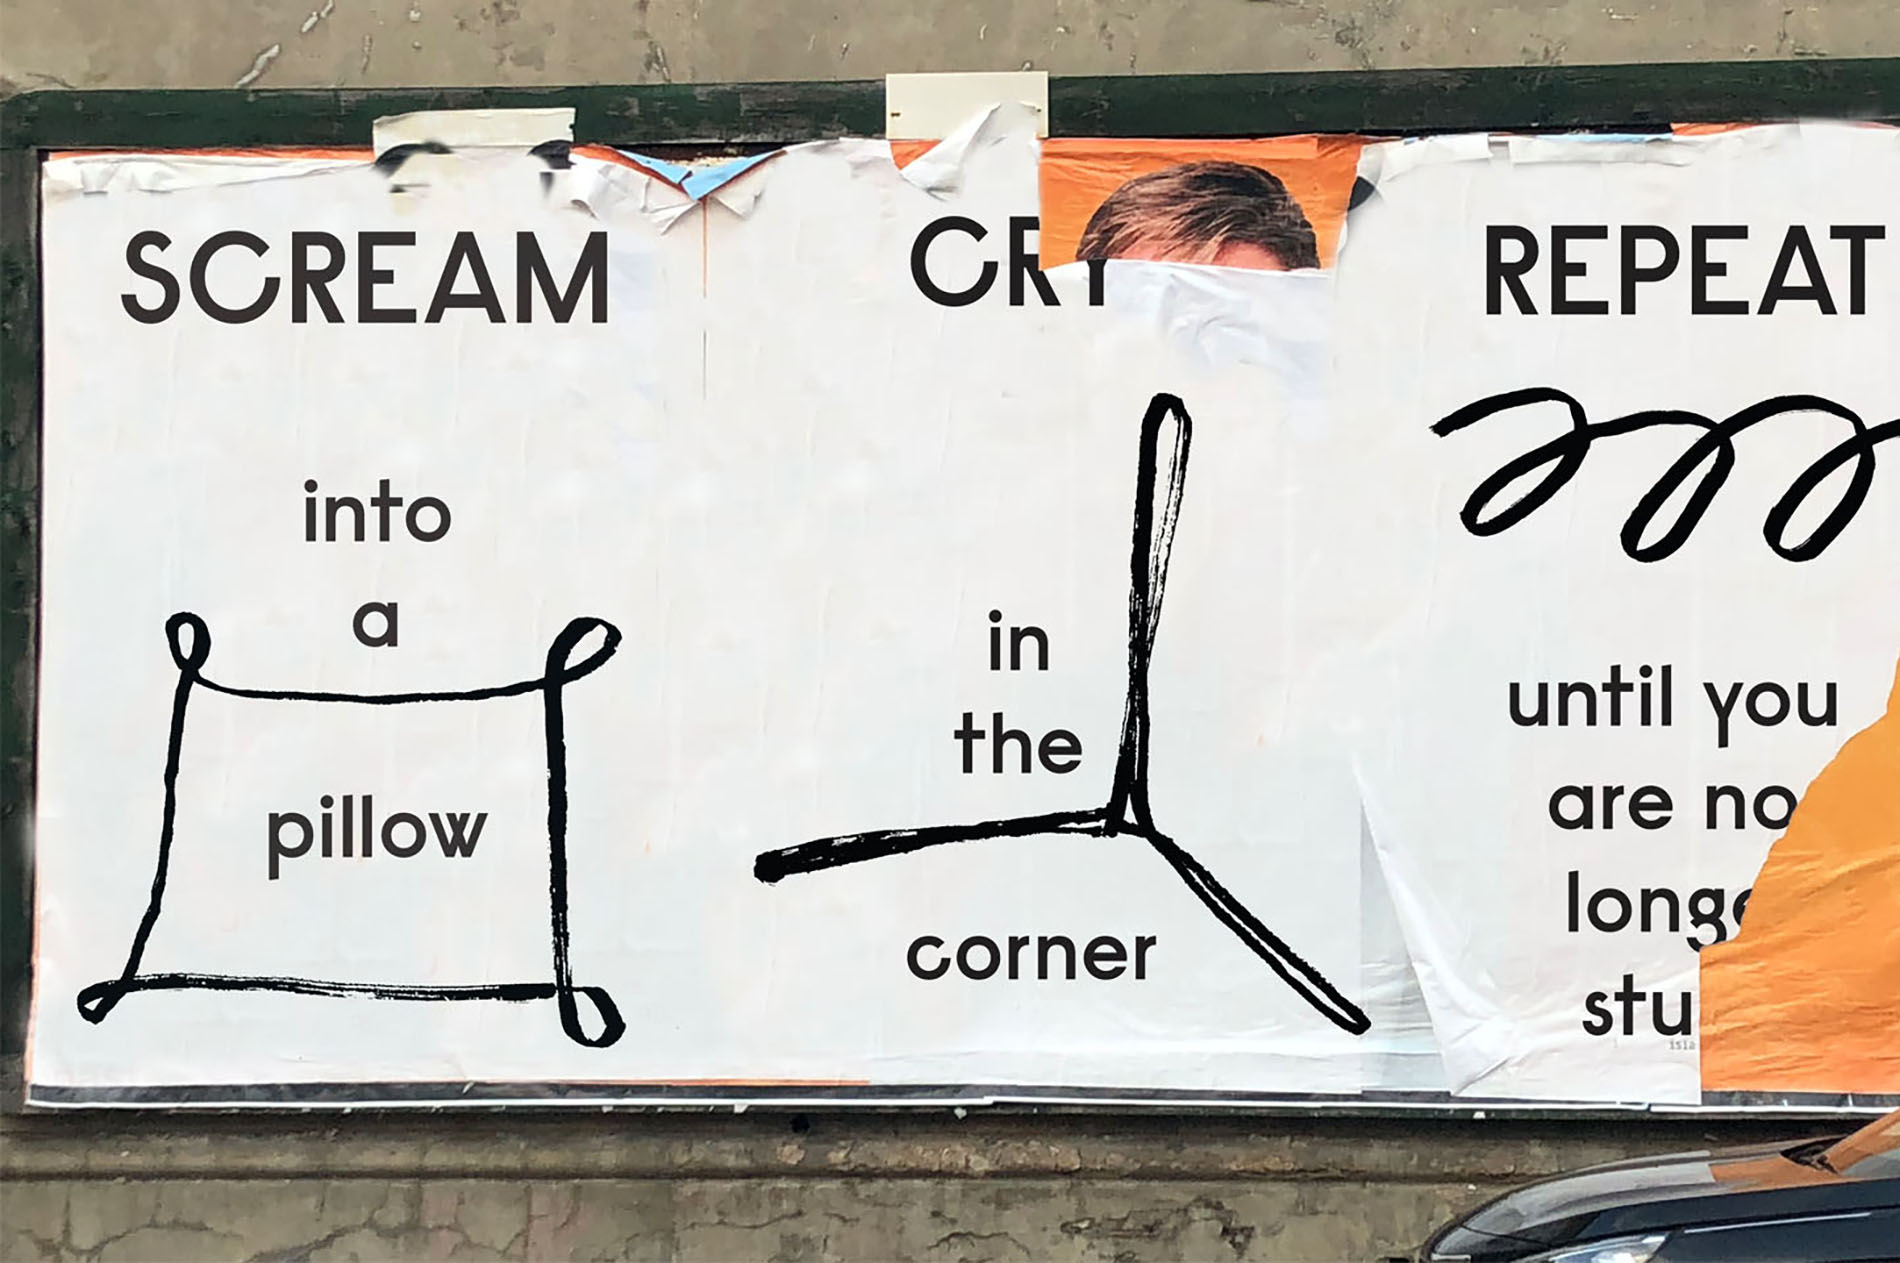 SCREAM
into
a
pillow
CRY
in
the
corner
REPEAT
until you
are no
longe
stu
isla